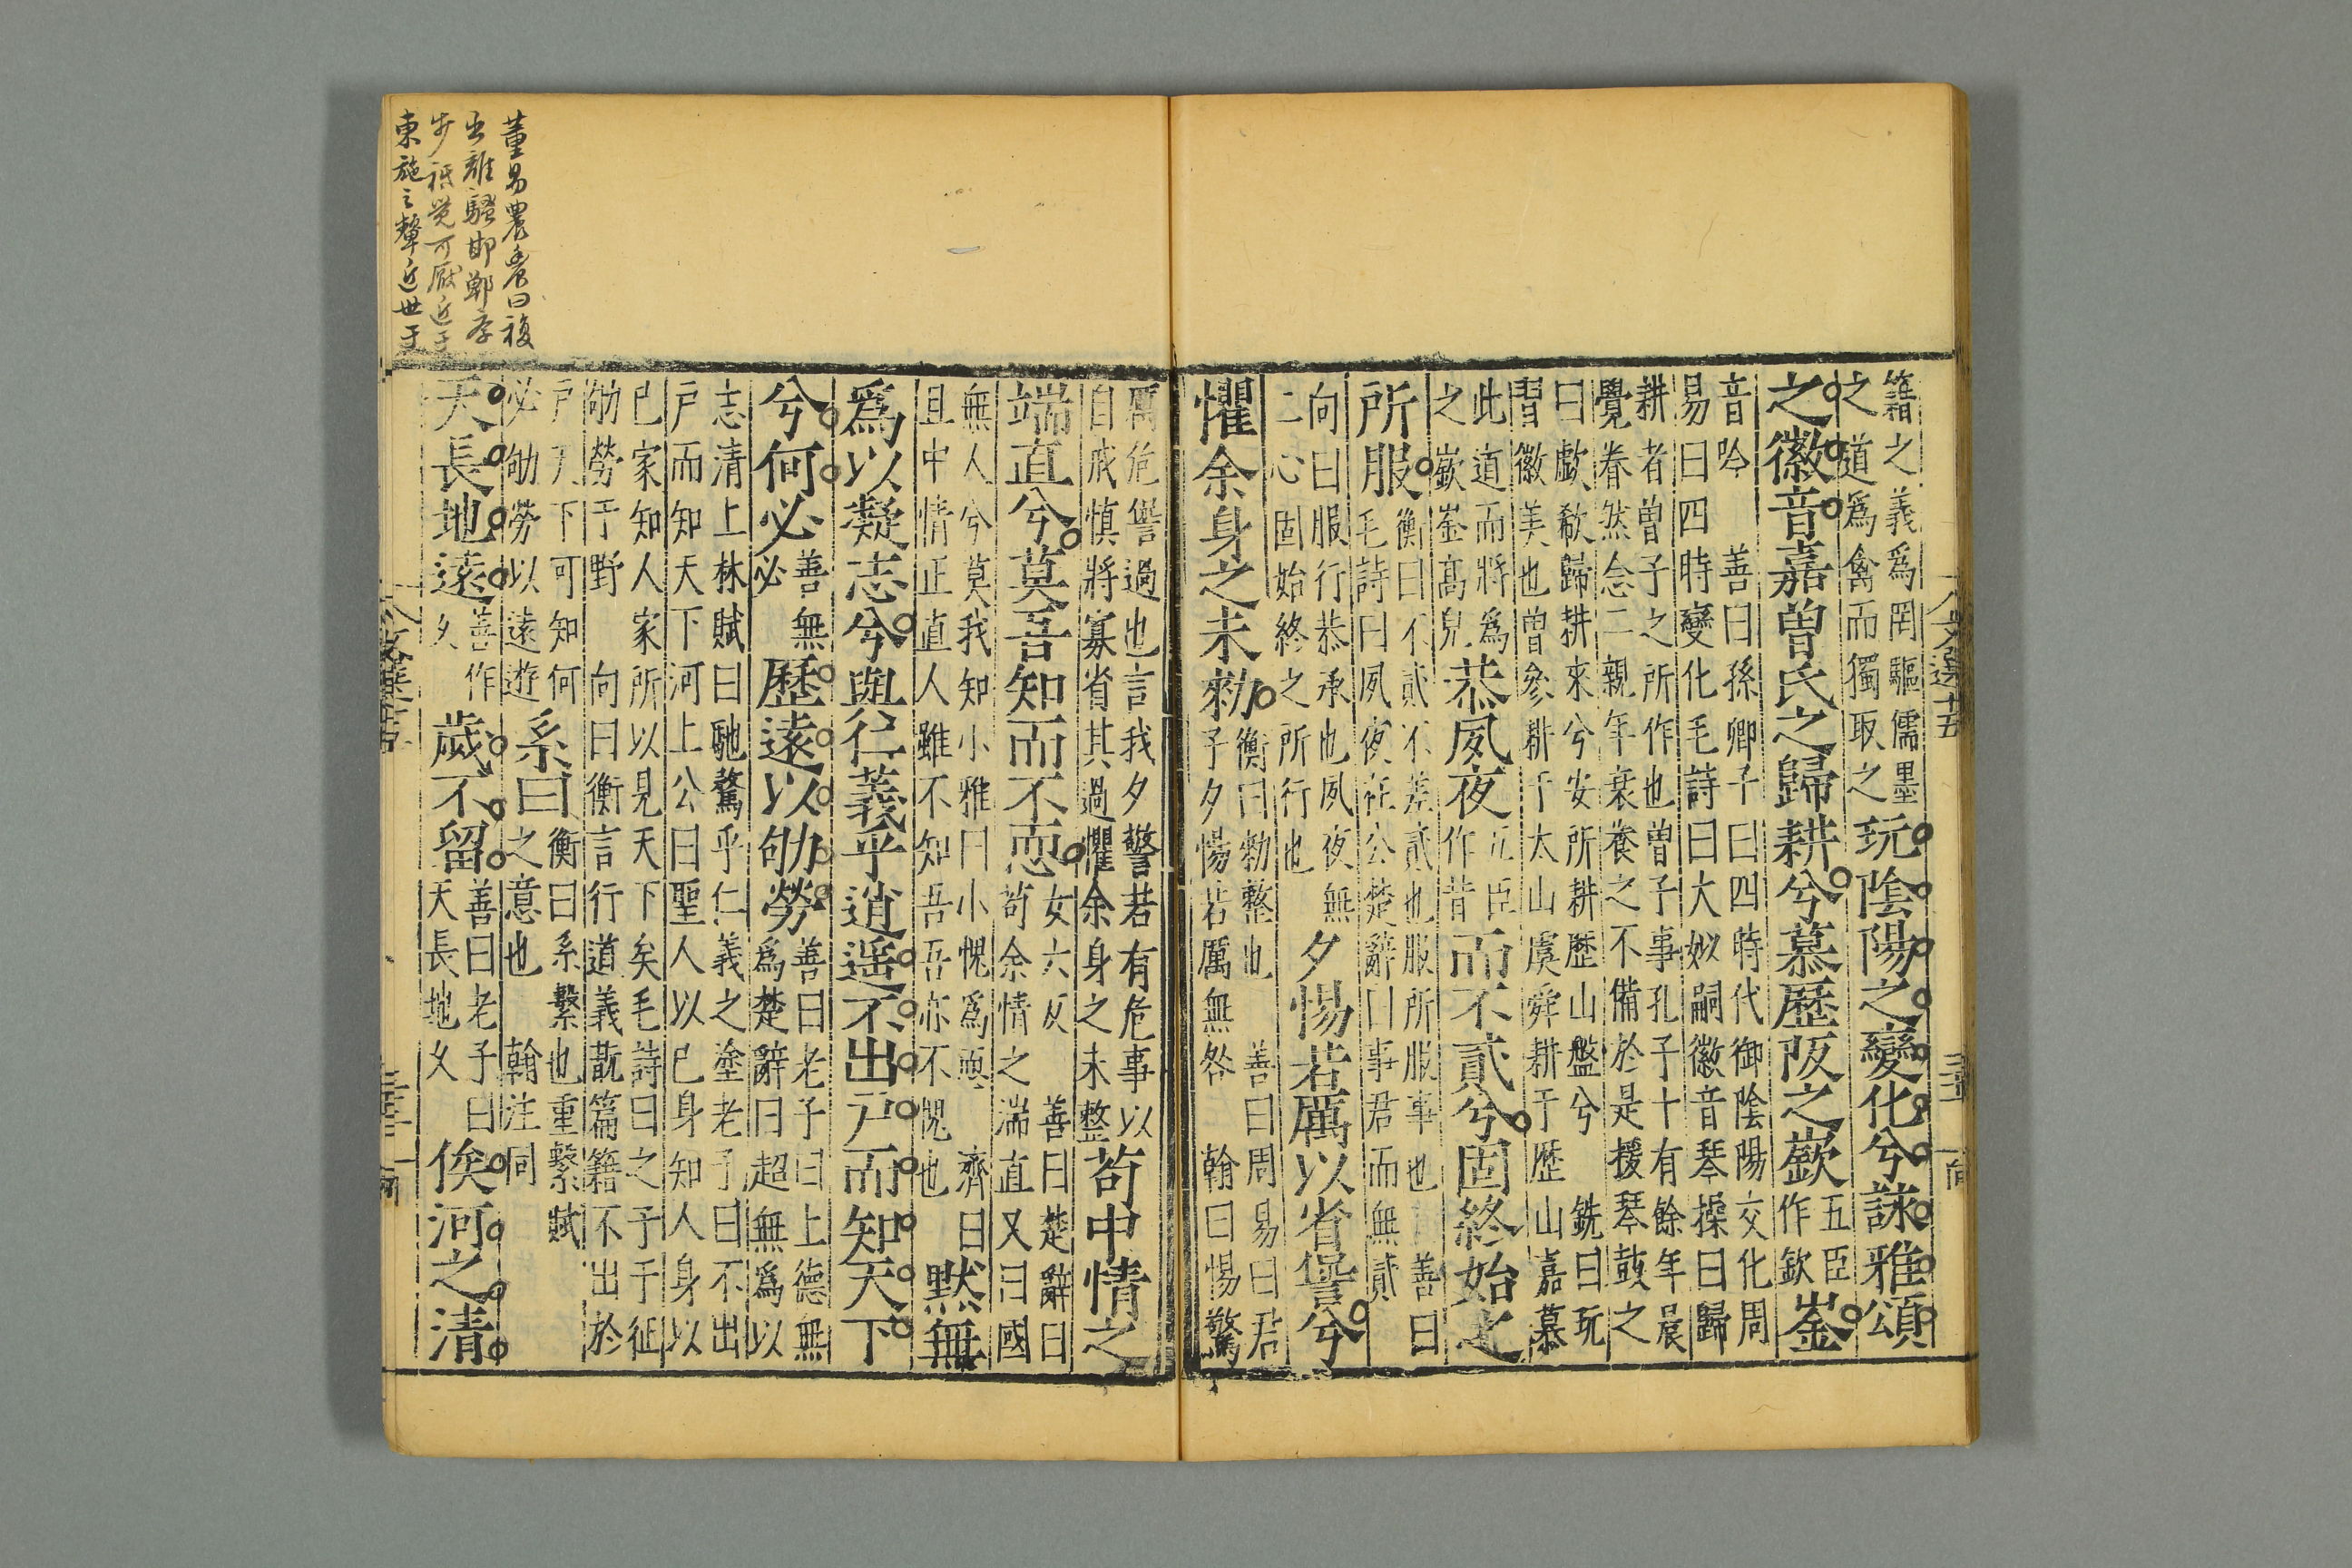 文選十五
籍之義為罔驅儒墨
之道為禽而獨取之
玩陰陽之變化兮詠雅頌
之徽音嘉曾氏之歸耕兮慕歷阪之嶔
五臣
作欽
崟
音吟　善曰孫卿子曰四時代御陰陽交化周
易曰四時變化毛詩曰大姒嗣徽音琴操曰歸
耕者曾子之所作也曾子事孔子十有餘年晨
覺眷然念二親年衰養之不備於是援琴鼓之
曰歔欷歸耕來兮安所耕歷山盤兮　銑曰玩
習徽美也曾參耕于太山虞舜耕于歷山嘉慕
此道而將為
之嶔崟高皃
恭夙夜
五臣
作昔
而不貳兮固終始之
所服
衡曰不貳不差貳也服所服事也　善曰
毛詩曰夙夜在公楚辭曰事君而無貳
向曰服行恭承也夙夜無
二心固始終之所行也
夕惕若厲以省諐兮
懼余身之未勑
衡曰勑整也　善曰周易曰君
子夕惕若厲無咎　翰曰惕驚
厲危諐過也言我夕警若有危事以
自戒慎將寡省其過懼余身之未整
苟中情之
端直兮莫吾知而不恧
女六反　善曰楚辭曰
苟余情之端直又曰國
無人兮莫我知小雅曰小愧為恧　濟曰
且中情正直人雖不知吾吾亦不愧也
默無
為以凝志兮與仁義乎逍遥不出戶而知天下
兮何必
善無
必
歷遠以劬勞
善曰老子曰上德無
為楚辭曰超無為以
志清上林賦曰馳騖乎仁義之塗老子曰不出
戶而知天下河上公曰聖人以己身知人身以
己家知人家所以見天下矣毛詩曰之子于征
劬勞于野　向曰衡言行道義翫篇籍不出於
戶天下可知何
必劬勞以遠遊
系曰
衡曰系繫也重繫賦
之意也　翰注同
天長地遠
善作
久
歲不留
善曰老子曰
天長地久
俟河之清
董易農曰複
出離騷邯鄲学
步祇覺可厭近于
東施之顰近世于